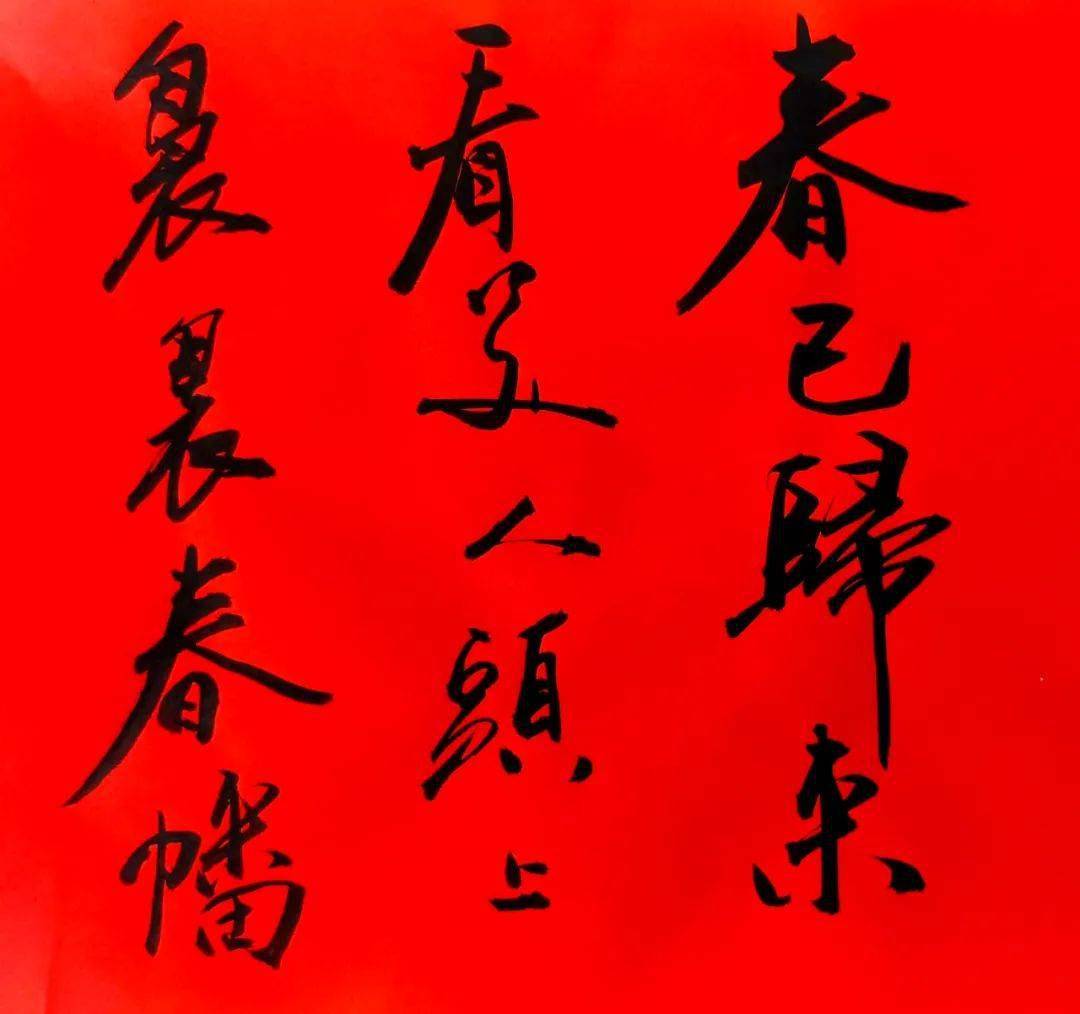 春已歸来
看美人頭上
裊裊春幡